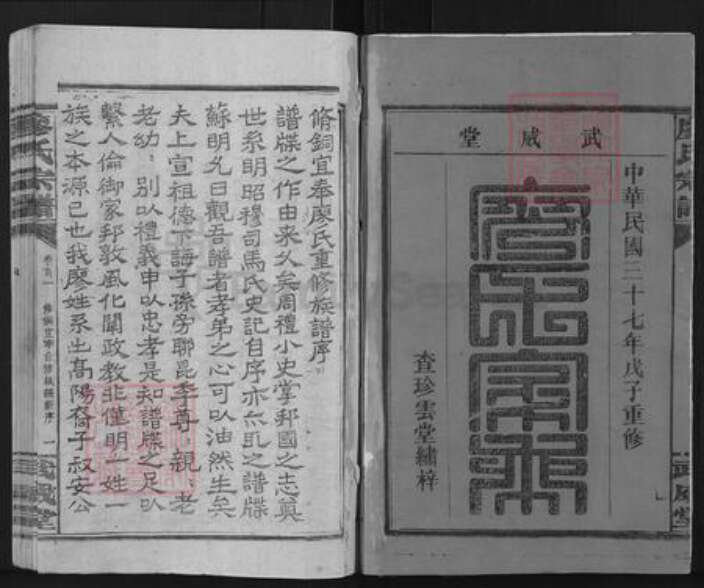 武威堂
中華民國三十七年戊子重修
廖氏宗譜
查珍雲堂繡梓
武威堂
脩銅宜奉廖氏重修族譜序
譜牒之作由來久矣周禮小史掌邦國之志奠
世系明昭穆司馬氏史記自序亦然之譜牒
蘇明允曰觀吾譜者孝弟之心可以油然生矣
夫上宣祖德下誨子孫旁聯昆季尊親老
老幼別以禮義申以忠孝是知譜牒之足以
繫人倫御家邦敦風化關政教非僅明一姓一
族之本源已也我廖姓系出高陽裔子叔安公
廖氏宗譜
卷首
一
武威堂